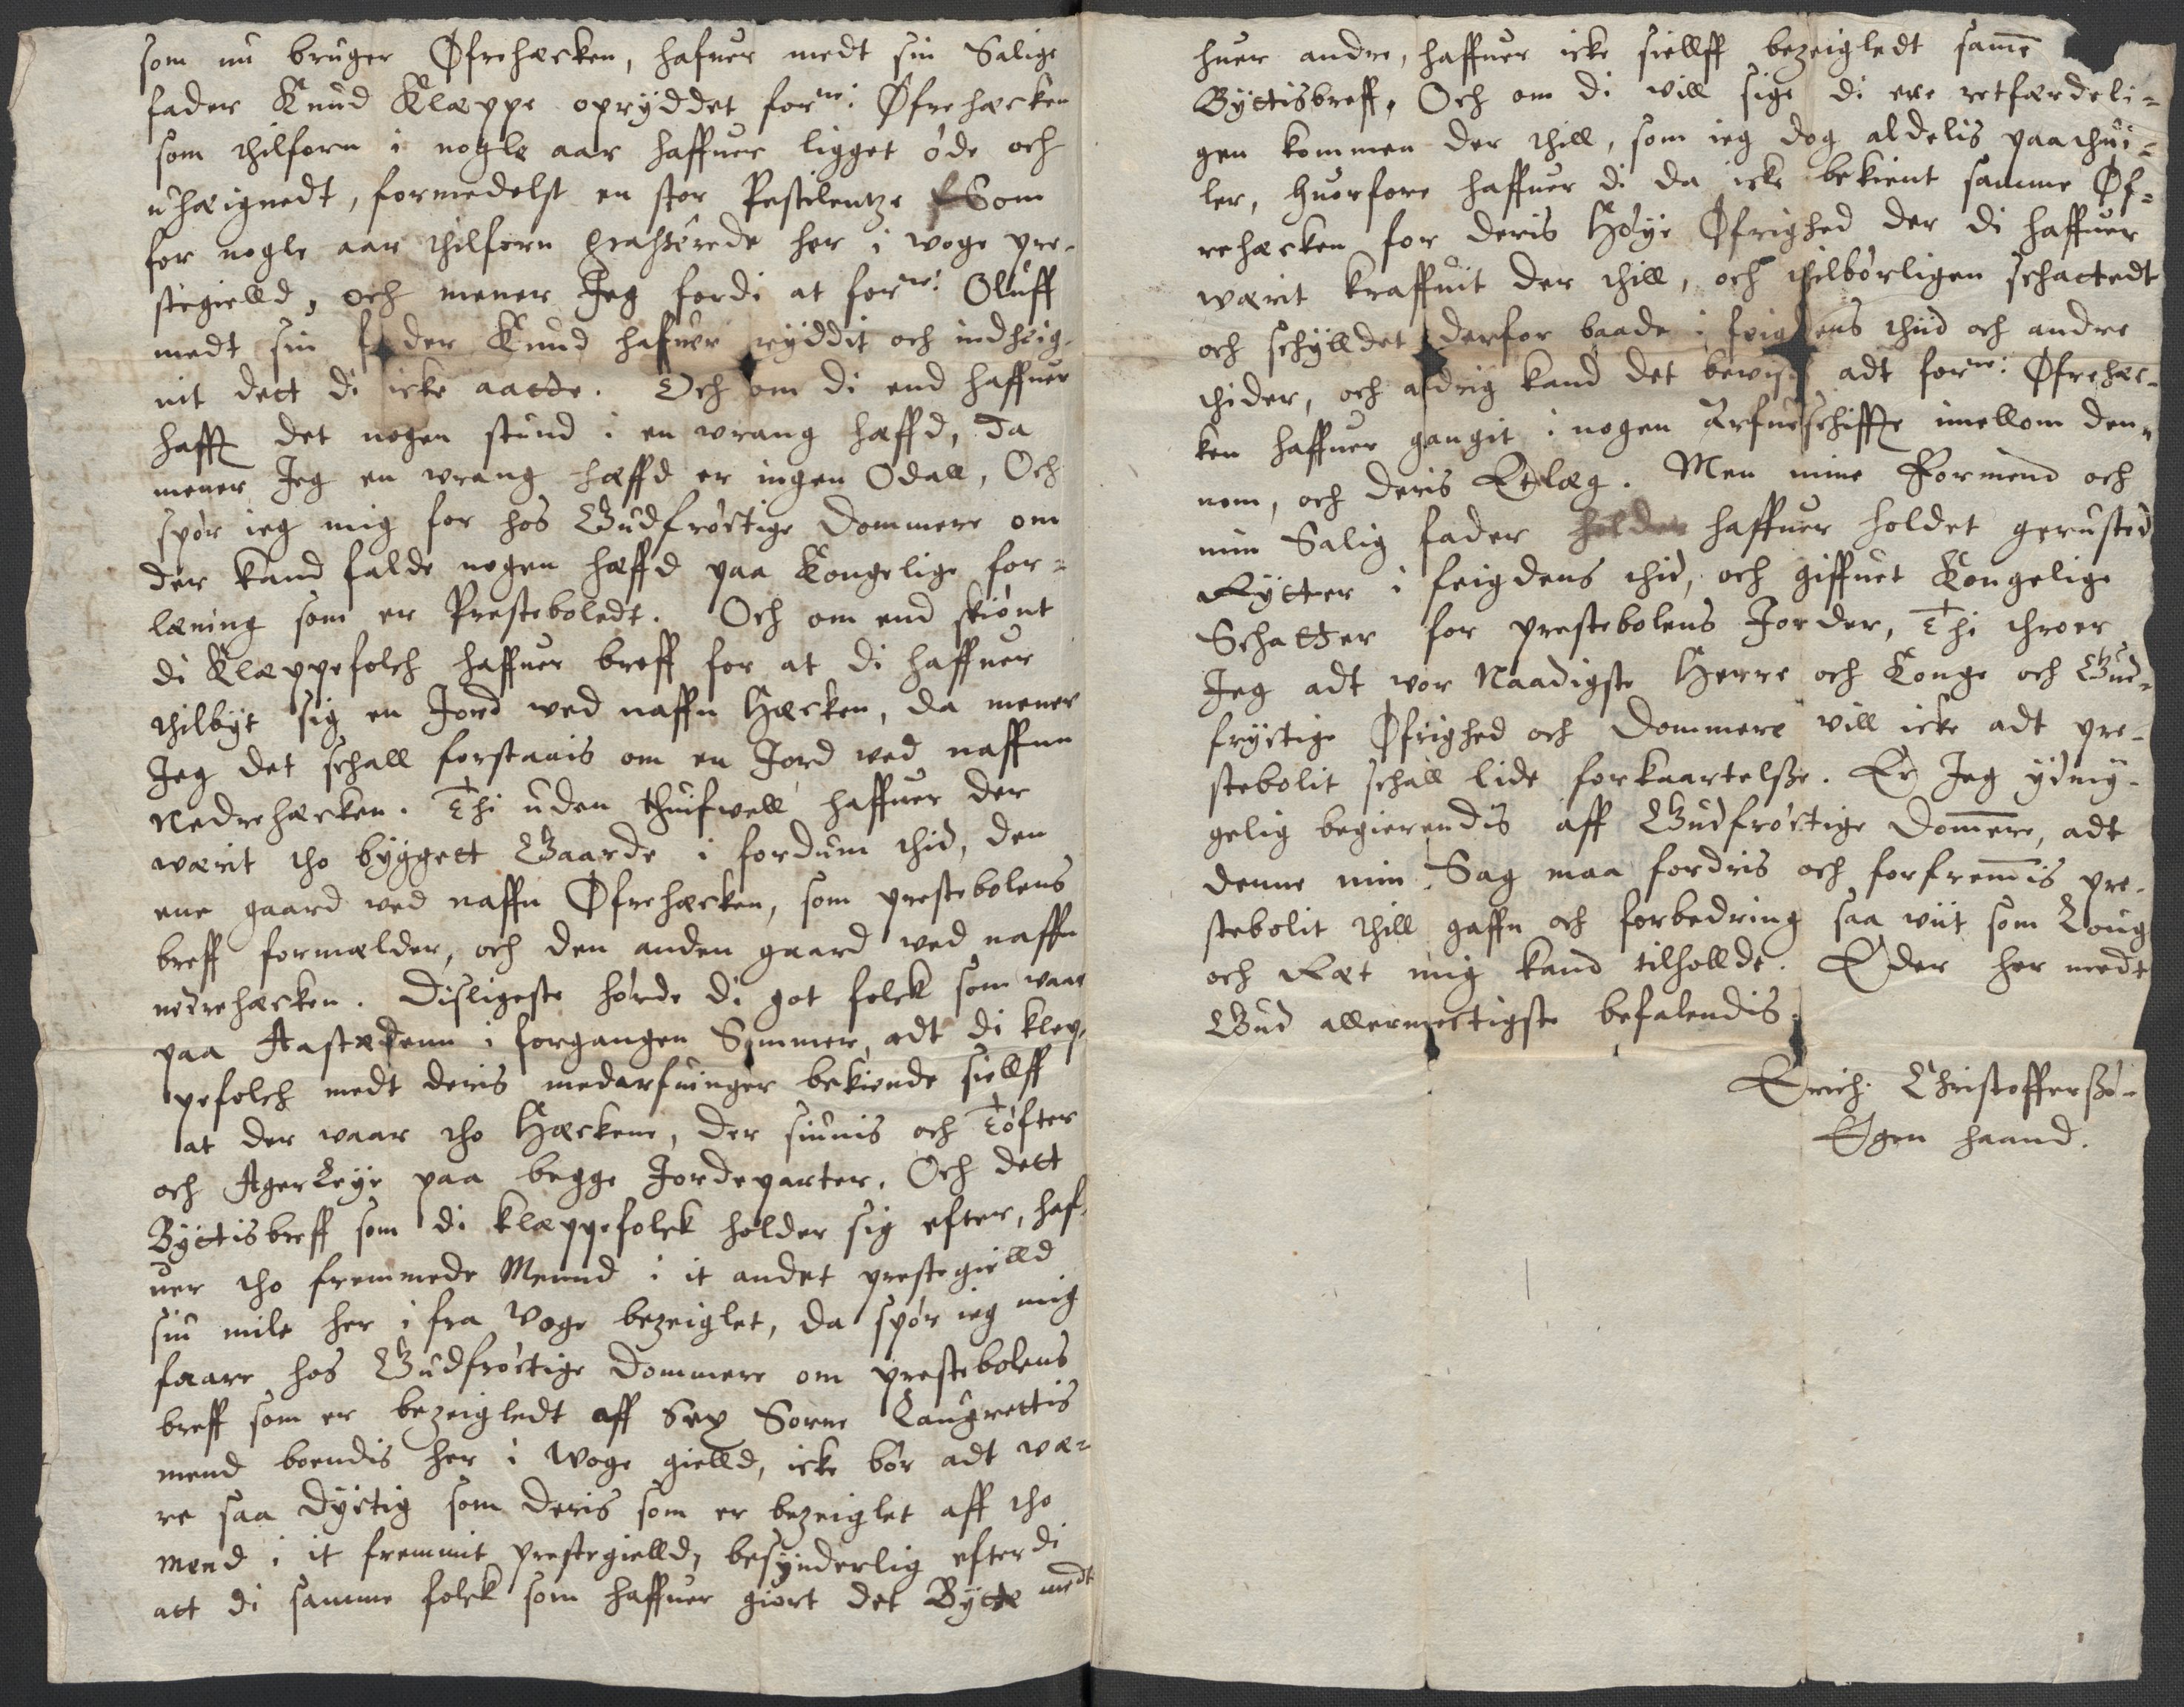 som nu bruger Øfrehæcken, hafuer medt sin Salige
fader Knud Klæppe oprÿddet forne: Øfrehæcken
som thilforn i nogle aar haffuer ligget øde och
uhæignedt, formedelst en stor Pestilentze Som
for nogle aar thilforn grahserede her i woge pre-
stegielld, och mener Jeg fordi at forne: Oluff
medt sin fader Knud hafuer rÿddit och indheig-
nit dett di icke aatte. Och om di end haffuer
hafft det nogen stund i en wrang hæffd, da
mener Jeg en wrang hæffd er ingen Odall, Och
spør ieg mig for hos Gudfrøctige Dommere om
der kand falde nogen hæffd paa Kongelige for-
læning som er Presteboledt. Och om end skiønt
di Klæppefolch haffuer breff for at di haffuer
thilbÿt sig en Jord ved naffn Hæcken, da mener
Jeg det schall forstaais om en Jord ved naffnn
Nedrehæcken. Thi uden thuifwell haffuer der
wærit tho bÿggett Gaarde i fordum thid, den
ene gaard ved naffn Øfrehæcken, som prestebolens
breff formælder, och den anden gaard ved naffn
nedrehæcken. Disligeste hørde di got folck som waar
paa Aastædenn i forgangen Sommer, adt di klep-
pefolch medt deris medarfuinger bekiende siellff
at der waar tho Hæckene, der siunis och Tøfter
och Ager Reÿe paa begge Jordeparter. Och dett
Bÿttisbreff som di klæppefolck holder sig efter, haf-
uer tho fremmede Mennd i it andet prestegielld
siu mile her ifra Woge bezeiglet, da spør ieg mig
faare hos Gudfrøctige Dommere om prestebolens
breff som er bezeigledt aff Sex Sorne Laugrettis
mend boendis her i Woge gielld, icke bør adt wæ-
re saa dÿctig som deris som er bezeiglet aff tho
Mend i it fremmit prestegielld, besÿnderlig efterdi
att di samme folck som haffuer giort det Bÿtte medt
huer andre, haffuer icke siellff bezeigledt same
Bÿttisbreff. Och om di vill sige di ere retfærdeli-
gen kommen der thill, som ieg dog aldelis paathui-
ler, huorfore haffuer di da icke bekient samme Øf-
rehæcken for deris Høÿe Øfrighed der di haffuer
wærit kraffuit der thill, och thilbørligen schattedt
och schÿlldet derfor baade i feigdens thiid och andre
thider, och aldrig kand det bewises adt forne: Øfrehæc-
ken haffuer gangit i nogen Arfueschiffte imellom den-
nom, och deris Etlæg. Men mine Formend och
min Salig fader haffuer holdet gerusted
Rÿtter i feigdens thid, och giffuet Kongelige
Schatter for prestebolens Jorder, Thi throer
Jeg adt wor Naadigste Herre och Konge och Gud-
frÿctige Øfrighed och Dommere vill icke adt pre-
stebolit schall lide forkaartelsse. Er Jeg ÿdmÿ-
gelig begierendis aff Gudfrøctige Domere, adt
denne min Sag maa fordris och forfremis pre-
stebolit thill gaffn och forbedring saa viit som Loug
och Ræt mig kand tilhollde. Eder her medt
Gud allermectigste befalendis.
Erich Christofferssø-
Egen haand.